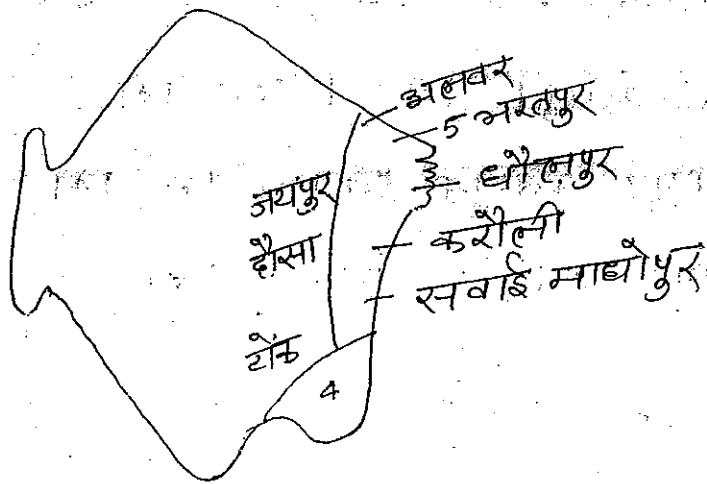 अलवर
5 भरतपुर
धौलपुर
जयपुर
दौसा
करौली
सवाई माधोपुर
टोंक
4